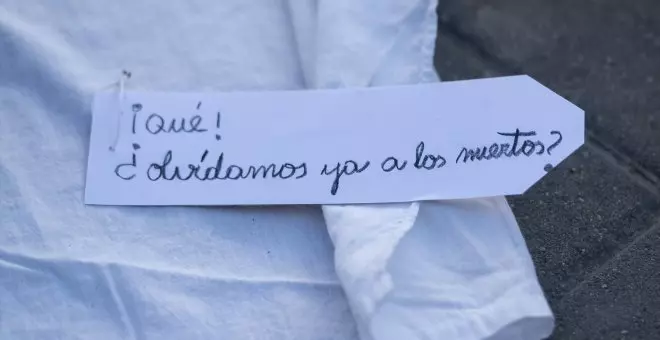 ¡Qué!
¿olvídamos ya a los muertos?